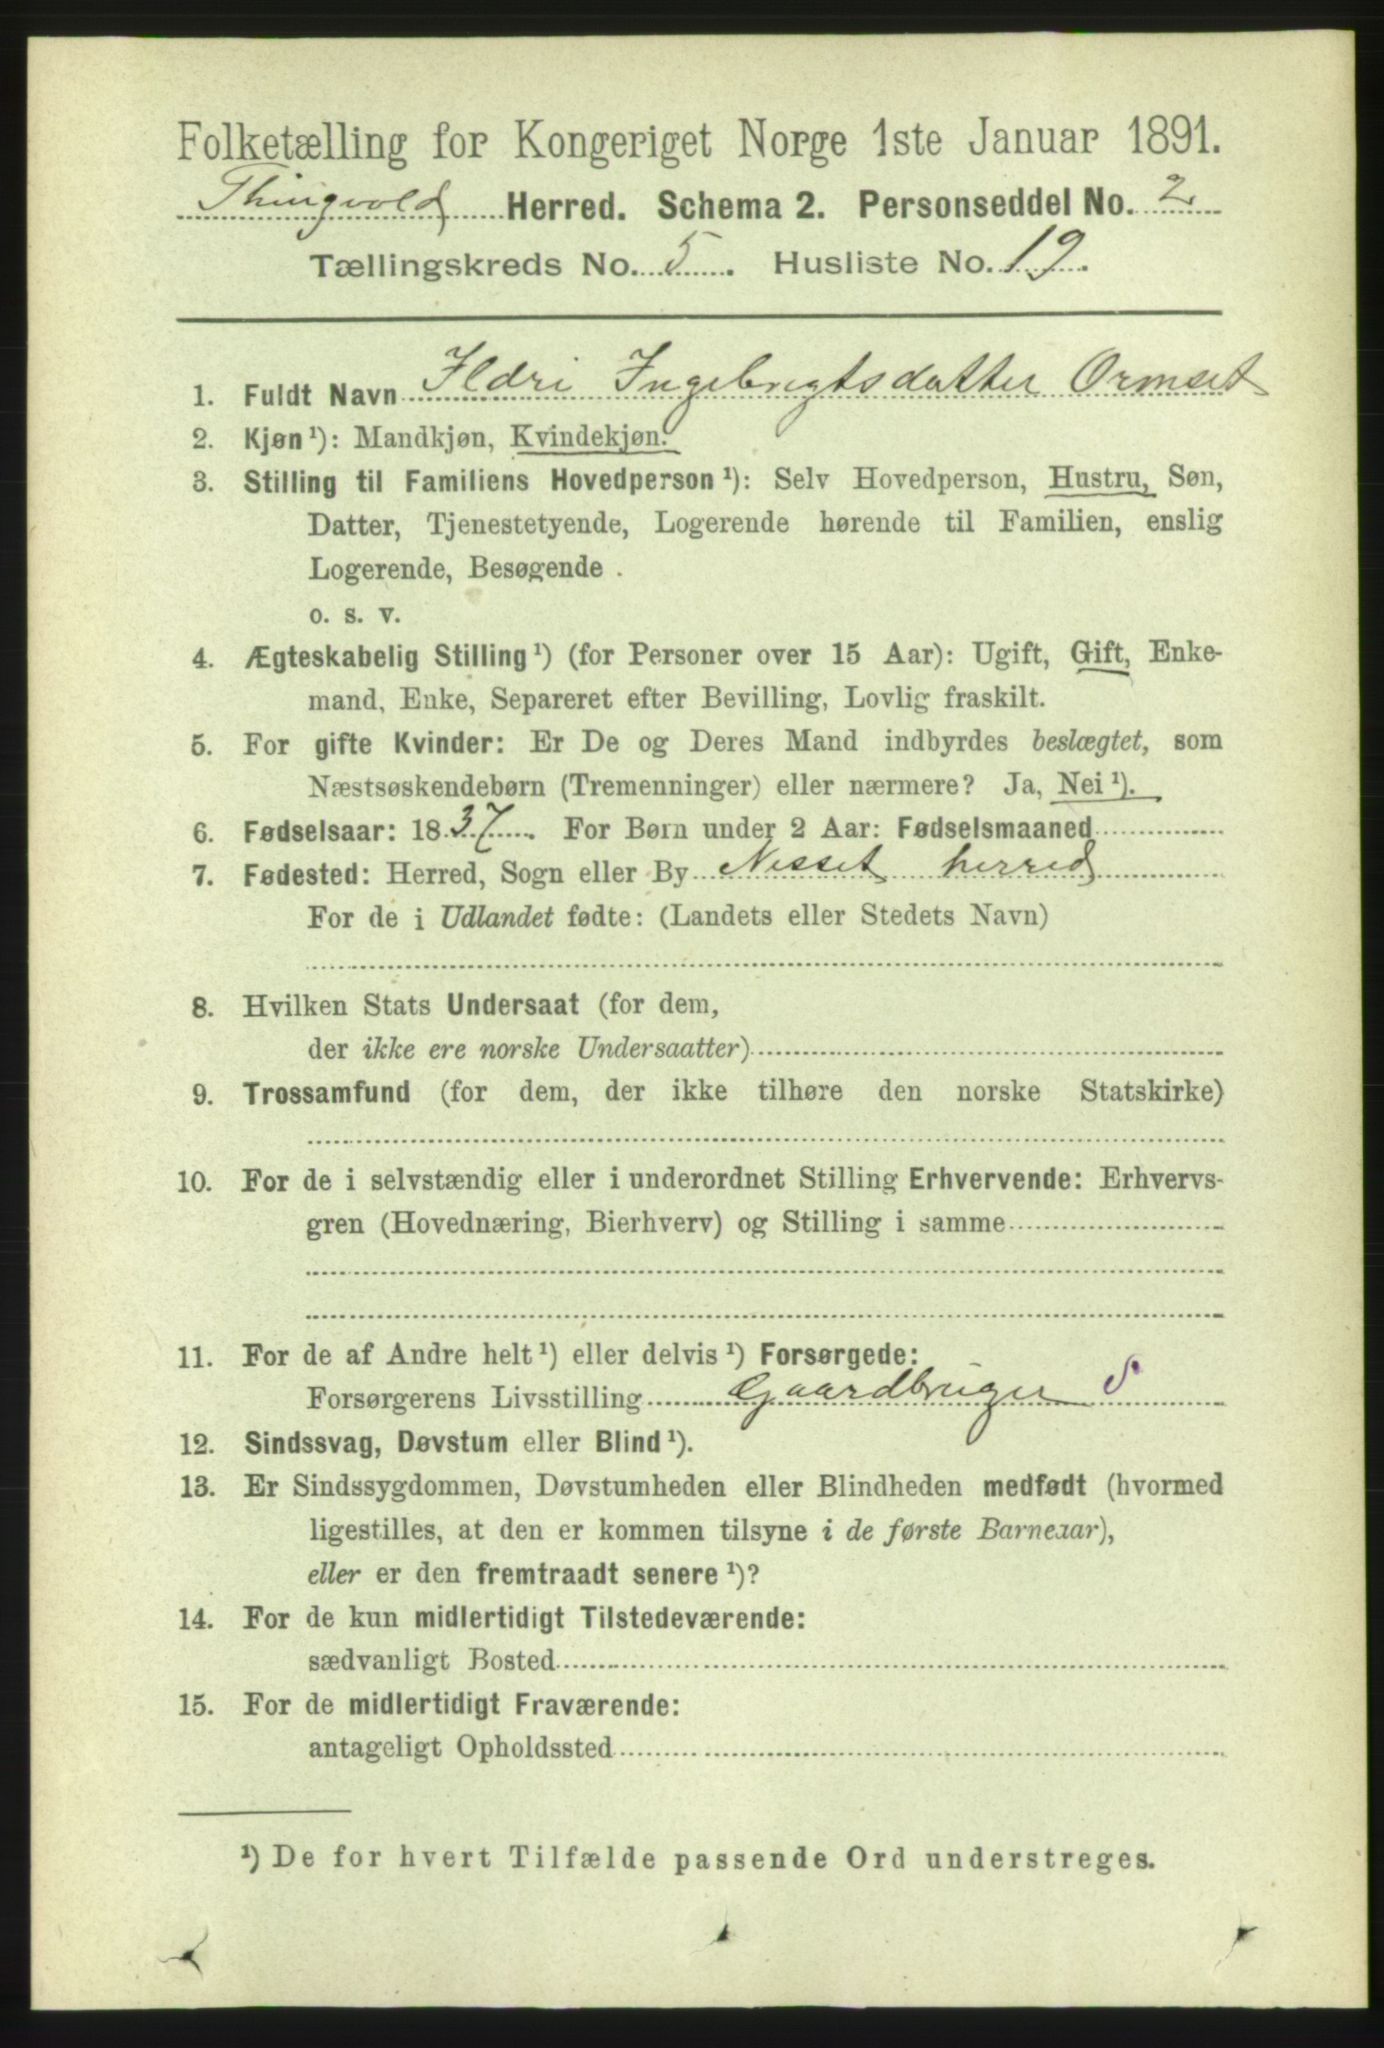 Folketælling for Kongeriget Norge 1ste Januar 1891.
Thingvold Herred. Schema 2. Personseddel No. 2
Tællingskreds No. 5. Husliste No. 19.
1. Fuldt Navn Ildri Ingebrigtsdatter Ormset
2. Kjøn¹): Mandkjøn, Kvindekjøn.
3. Stilling til Familiens Hovedperson¹): Selv Hovedperson, Hustru, Søn,
Datter, Tjenestetyende, Logerende hørende til Familien, enslig
Logerende, Besøgende .
o. s. v.
4. Ægteskabelig Stilling¹) (for Personer over 15 Aar): Ugift, Gift, Enke-
mand, Enke, Separeret efter Bevilling, Lovlig fraskilt.
5. For gifte Kvinder: Er De og Deres Mand indbyrdes beslægtet, som
Næstsøskendebørn (Tremenninger) eller nærmere? Ja, Nei¹).
6. Fødselsaar: 1837. For Børn under 2 Aar: Fødselsmaaned
7. Fødested: Herred, Sogn eller By Nesset herred
For de i Udlandet fødte: (Landets eller Stedets Navn)
8. Hvilken Stats Undersaat (for dem,
der ikke ere norske Undersaatter)
9. Trossamfund (for dem, der ikke tilhøre den norske Statskirke)
10. For de i selvstændig eller i underordnet Stilling Erhvervende: Erhvervs-
gren (Hovednæring, Bierhverv) og Stilling i samme
11. For de af Andre helt¹) eller delvis¹) Forsørgede:
Forsørgerens Livsstilling Gaardbruger S
12. Sindssvag, Døvstum eller Blind¹).
13. Er Sindssygdommen, Døvstumheden eller Blindheden medfødt (hvormed
ligestilles, at den er kommen tilsyne i de første Barneaar),
eller er den fremtraadt senere¹)?
14. For de kun midlertidigt Tilstedeværende:
sædvanligt Bosted
15. For de midlertidigt Fraværende:
antageligt Opholdssted
¹) De for hvert Tilfælde passende Ord understreges.